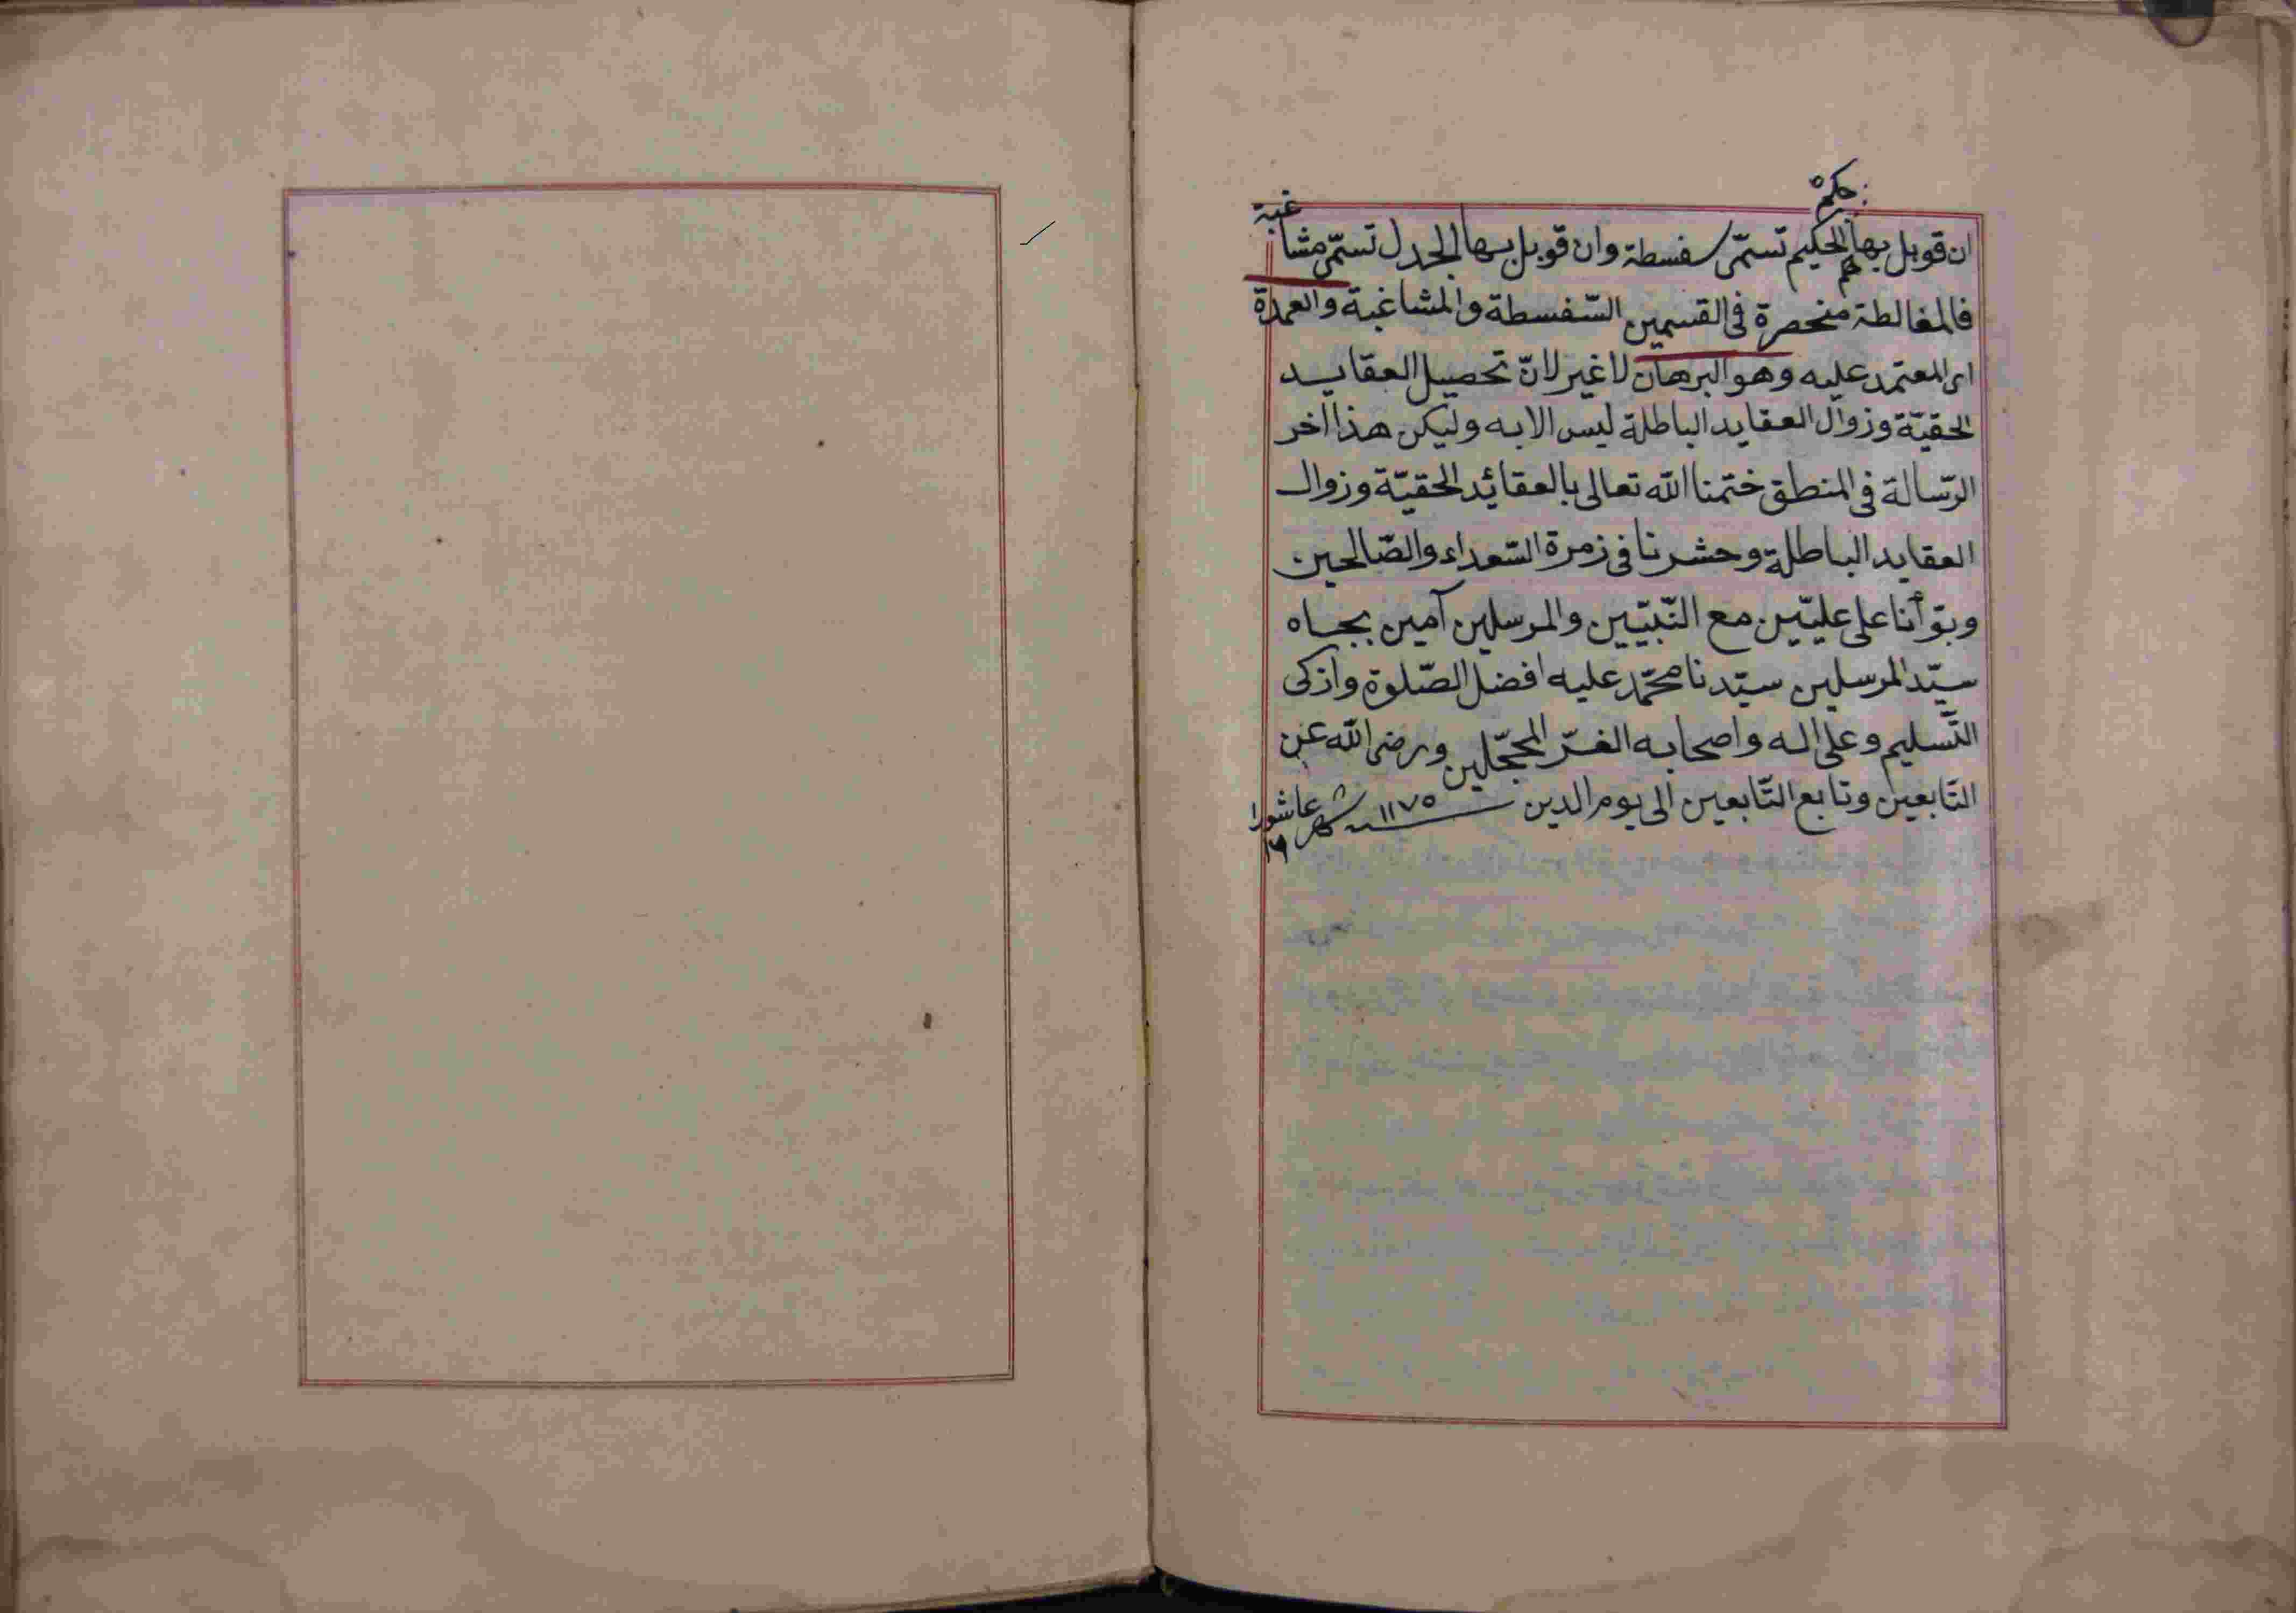 حكيم
ان قوبل بها الحكيم تسمّى سفسطة وان قوبل بها الجدل تسمّى مشاغبة
فالمغالطة منحصرة فى القسمين السّفسطة والمشاغبة والعمدة
اى المعتمد عليه وهو البرهان لا غير لانّ تحصيل العقايد
الحقيّة وزوال العقايد الباطلة ليس الا به وليكن هذا آخر
الرّسالة فى المنطق ختمنا الله تعالى بالعقائد الحقيّة وزوال
العقايد الباطلة وحشرنا فى زمرة السّعداء والصّالحين
وبوّأنا على علييّن مع النّبيّين والمرسلين آمين بجاه
سيّد المرسلين سيّدنا محمّد عليه افضل الصّلوة وازكى
التّسليم وعلى اله واصحابه الغرّ المحجّلين ورضى الله عن
التّابعين وتابع التّابعين الى يوم الدين ١١٧٥ شهر عاشورا